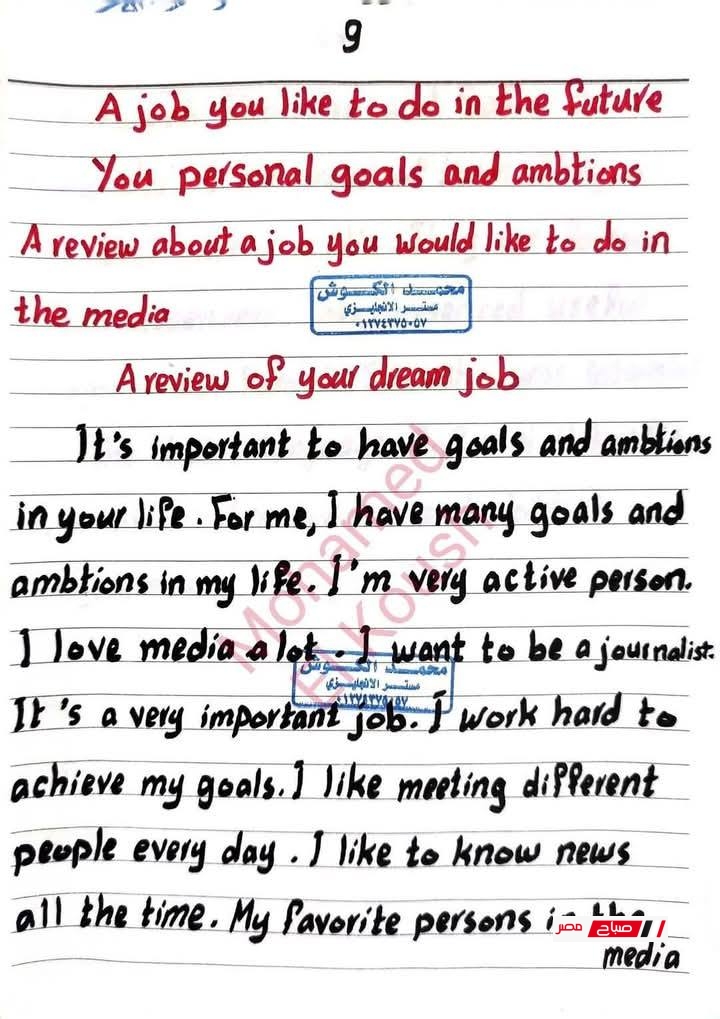 9
A job you like to do in the future
You personal goals and ambtions
A review about a job you would like to do in
the media
محمد الكوش
مستر الانجليزي
٠١٢٧٤٣٧٥٠٥٧
A review of your dream job
It's important to have goals and ambtions
in your life. For me, I have many goals and
ambtions in my life. I'm very active person.
I love media a lot. I want to be a journalist.
محمد الكوش
مستر الانجليزي
It's a very important job. I work hard to
achieve my goals. I like meeting different
people every day. I like to know news
all the time. My favorite persons in the
media
صباح مصر
Mohamed
El Koush